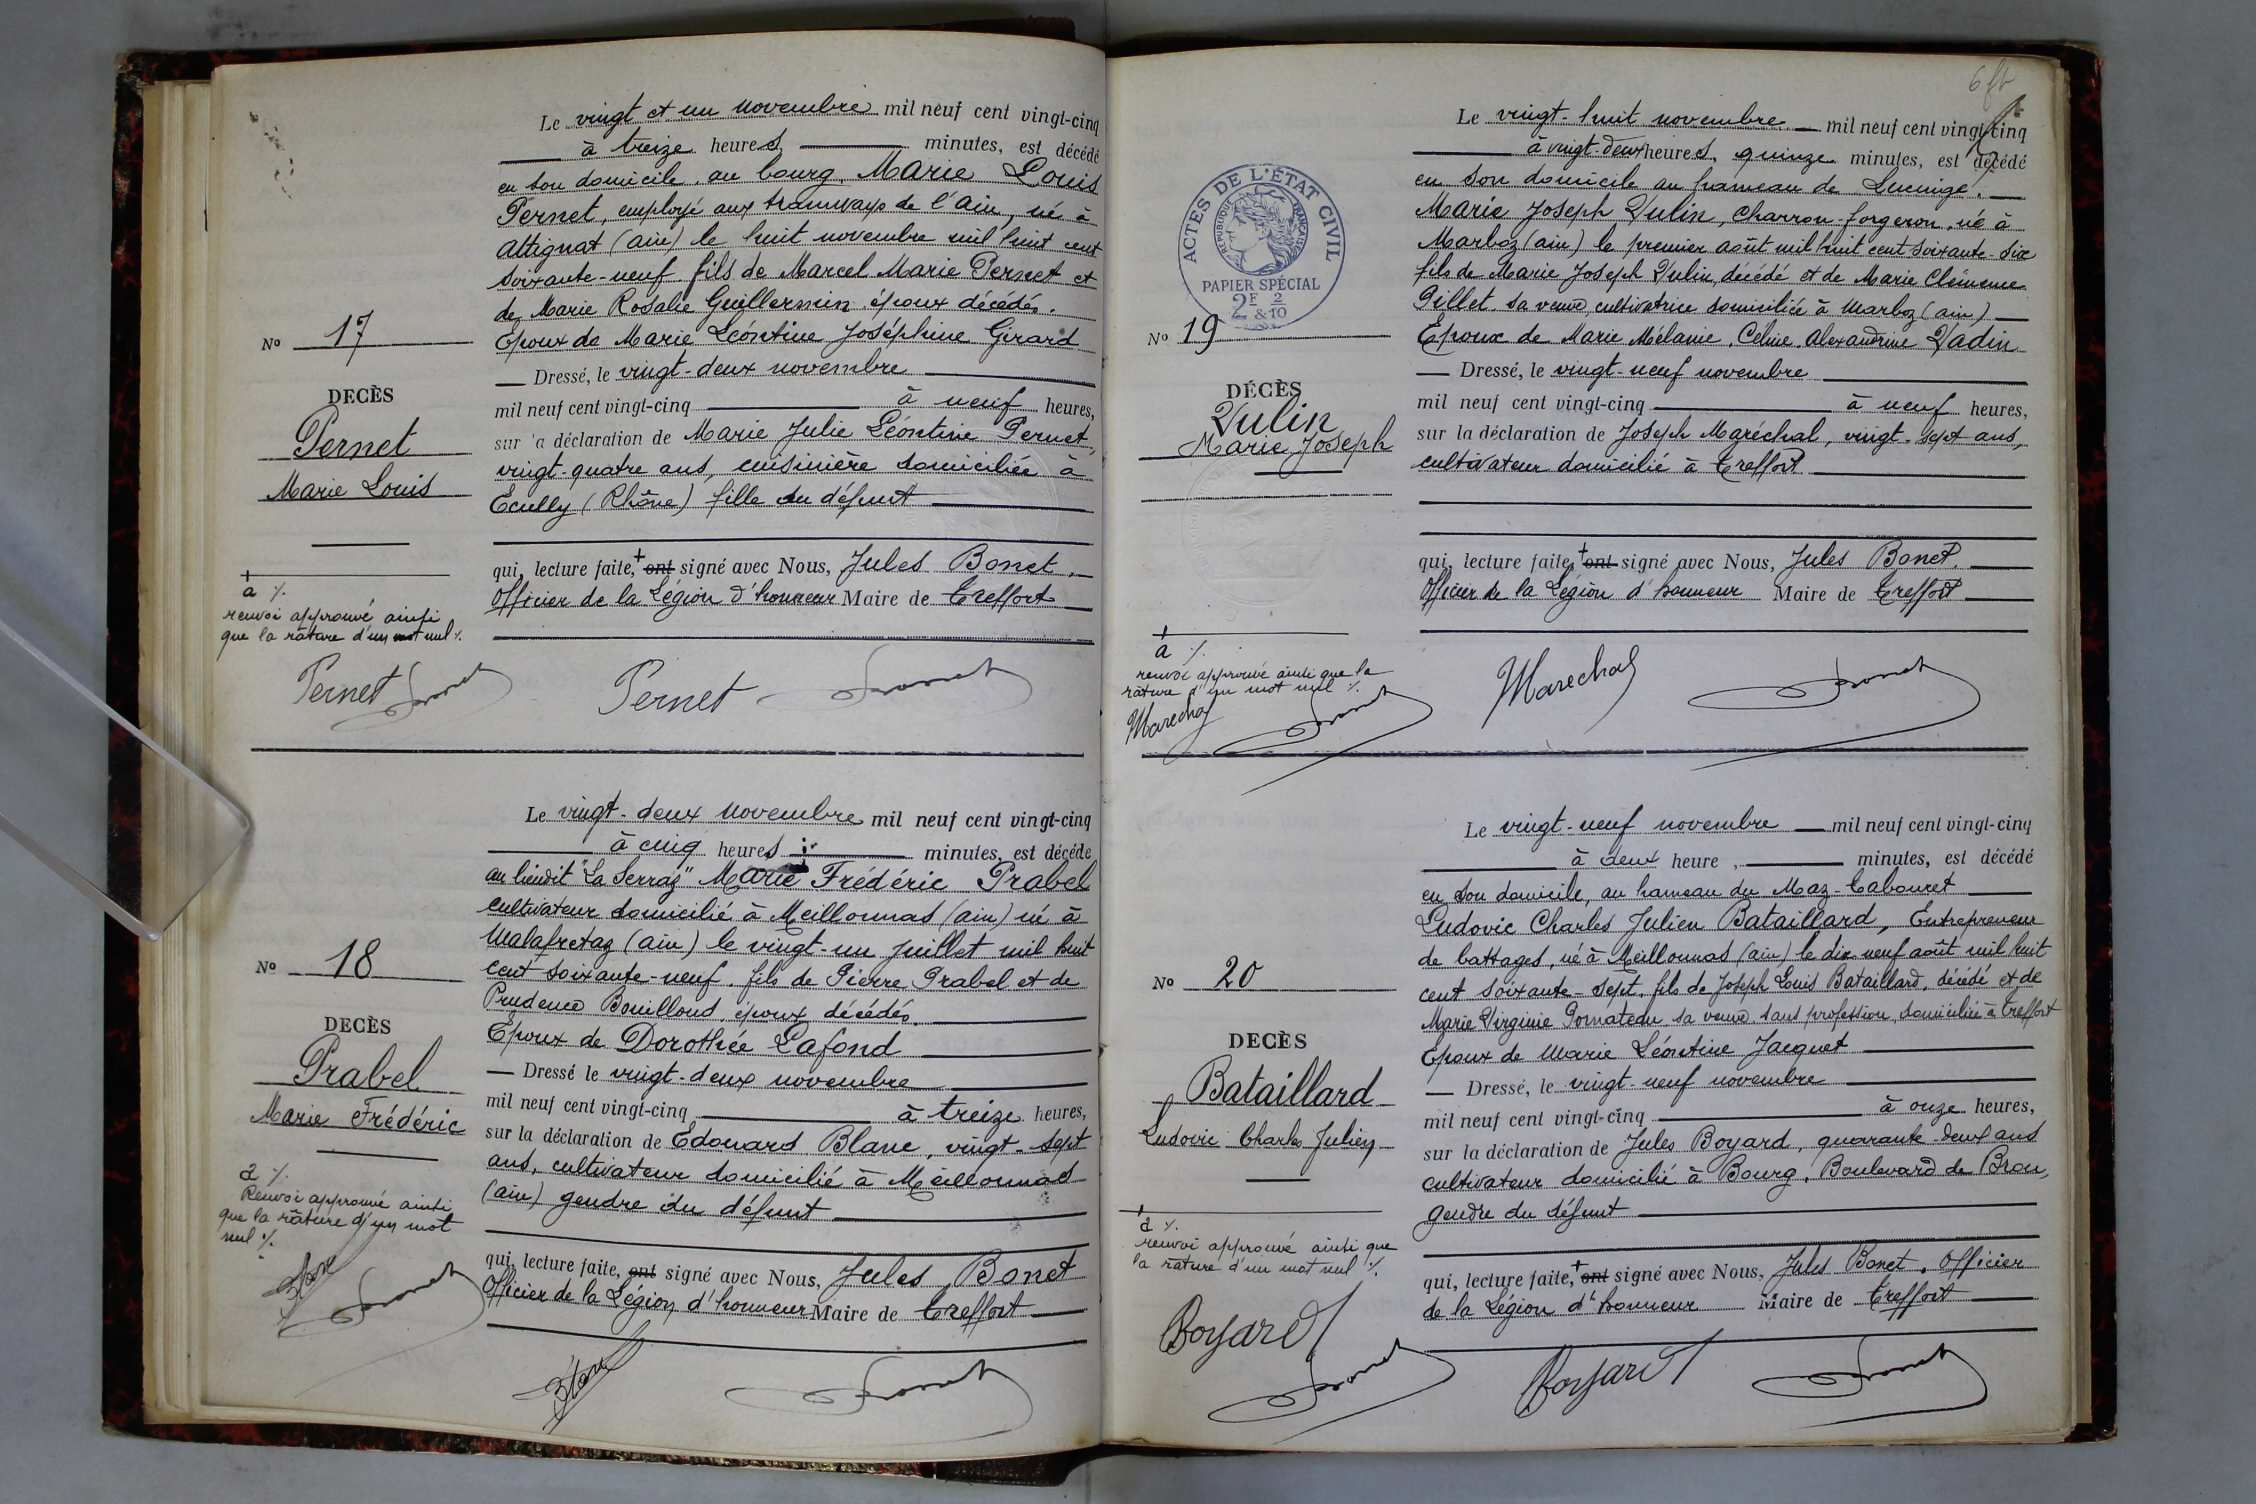 Le vingt et un novembre mil neuf cent vingt-cinq
à treize heures, minutes, est décédé
en son domicile, au bourg, Marie Louis
Pernet, employé aux tramways de l'ain, né à
attignat (ain) le huit novembre mil huit cent
soixante-neuf. fils de Marcel Marie Pernet et
de Marie Rosalie Guillermin époux décédés.
Epoux de Marie Léontine Joséphine Girard
Dressé, le vingt-deux novembre
mil neuf cent vingt-cinq à neuf heures,
sur la déclaration de Marie Julie Léontine Pernet,
vingt-quatre ans, cuisinière domiciliée à
Ecully (Rhône) fille du défunt
qui, lecture faite, + ont signé avec Nous, Jules Bonet,
Officier de la Légion d'honneur Maire de Treffort
No 17
DECÈS
Pernet
Marie Louis
+
a %.
renvoi approuvé ainsi
que la râture d'un mot nul %.
Pernet Bonet Pernet Bonet
Le vingt-deux novembre mil neuf cent vingt-cinq
à cinq heures minutes, est décédé
au lieudit "La Serraz" Marie Frédéric Prabel
cultivateur domicilié à Meillonnas (ain) né à
Malafretaz (ain) le vingt-un juillet mil huit
cent soixante-neuf. fils de Pierre Prabel et de
Prudence Bouilloud, époux décédés.
Epoux de Dorothée Lafond
Dressé le vingt-deux novembre
mil neuf cent vingt-cinq à treize heures,
sur la déclaration de Edouard Blanc, vingt-sept
ans, cultivateur domicilié à Meillonnas
(ain) gendre du défunt
qui, lecture faite, ont signé avec Nous, Jules Bonet
Officier de la Légion d'honneur Maire de Treffort
No 18
DECÈS
Prabel
Marie Frédéric
a %.
Renvoi approuvé ainsi
que la râture d'un mot
nul %.
Blanc Bonet
Blanc Bonet
6
ACTES DE L'ÉTAT CIVIL
RÉPUBLIQUE FRANÇAISE
PAPIER SPÉCIAL
2F 2
& 10
Le vingt-huit novembre mil neuf cent vingt-cinq
à vingt-deux heures, quinze minutes, est décédé
en son domicile au hameau de Lucinge.
Marie Joseph Vulin, charron-forgeron, né à
Marboz (ain) le premier août mil huit cent soixante-six
fils de Marie Joseph Vulin, décédé et de Marie Clémence
Pillet sa veuve, cultivatrice domiciliée à Marboz (ain)
Epoux de Marie Mélanie, Céline, Alexandrine Vadin
Dressé, le vingt-neuf novembre
mil neuf cent vingt-cinq à neuf heures,
sur la déclaration de Joseph Maréchal, vingt-sept ans,
cultivateur domicilié à Treffort
qui, lecture faite, + ont signé avec Nous, Jules Bonet,
Officier de la Légion d'honneur Maire de Treffort
No 19
DÉCÈS
Vulin
Marie Joseph
+
a %.
renvoi approuvé ainsi que la
râture d'un mot nul %.
Marechal Bonet Marechal Bonet
Le vingt-neuf novembre mil neuf cent vingt-cinq
à deux heure, minutes, est décédé
en son domicile, au hameau du Maz-Tabouret
Ludovic Charles Julien Bataillard, Entrepreneur
de battages, né à Meillonnas (ain) le dix neuf août mil huit
cent soixante-sept, fils de Joseph Louis Bataillard, décédé et de
Marie Virginie sa veuve, sans profession, domiciliée à Treffort
Epoux de Marie Léontine Jacquet
Dressé, le vingt-neuf novembre
mil neuf cent vingt-cinq à onze heures,
sur la déclaration de Jules Boyard, quarante-deux ans
cultivateur domicilié à Bourg, Boulevard de Brou,
gendre du défunt
qui, lecture faite, + ont signé avec Nous, Jules Bonet, Officier
de la Légion d'honneur Maire de Treffort
No 20
DECÈS
Bataillard
Ludovic Charles Julien
+
a %.
renvoi approuvé ainsi que
la râture d'un mot nul %.
Boyard Bonet
Boyard Bonet